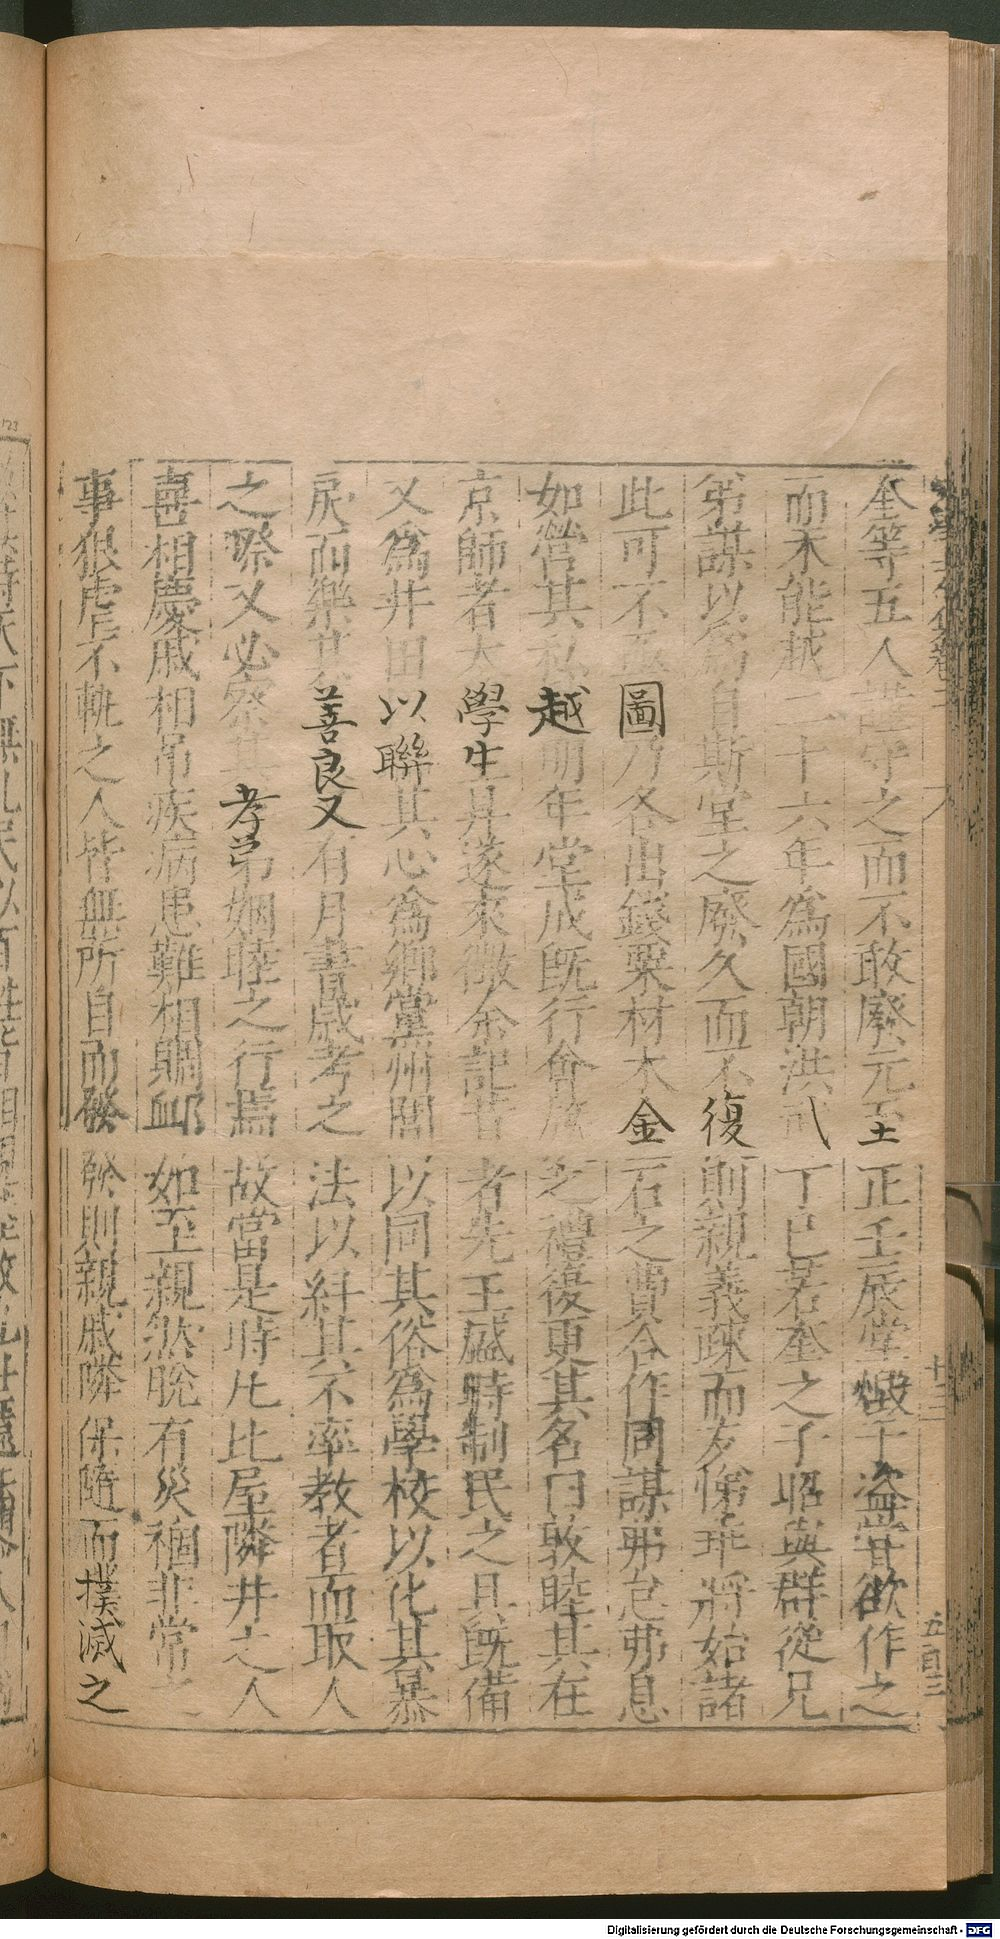 奎等五人謹守之而不敢廢元至正壬辰堂燬于盜嘗欲作之
而未能越二十六年為國朝洪武丁巳若奎之子昭與群從兄
弟謀以為自斯堂之廢久而不復則親義疎而友悌乖將始諸
此可不圖乃各出錢粟材木金石之費合作同謀弗怠弗息
如營其私越明年堂成既行會族之禮復更其名曰敦睦其在
京師者大學生昇遂來徵余記昔者先王盛時制民之具既備
又為井田以聯其心為鄉黨州閭以同其俗為學校以化其暴
戾而樂其善良又有月書歲考之法以糾其不率教者而取人
之際又必察其孝弟婣睦之行焉故當是時比屋隣井之人
喜相慶戚相吊疾病患難相賙卹如至親然脫有災禍非常之
事狠虐不軌之人皆無所自而發發則親戚隣保隨而撲滅之
十三
五百三
Digitalisierung gefördert durch die Deutsche Forschungsgemeinschaft - DFG